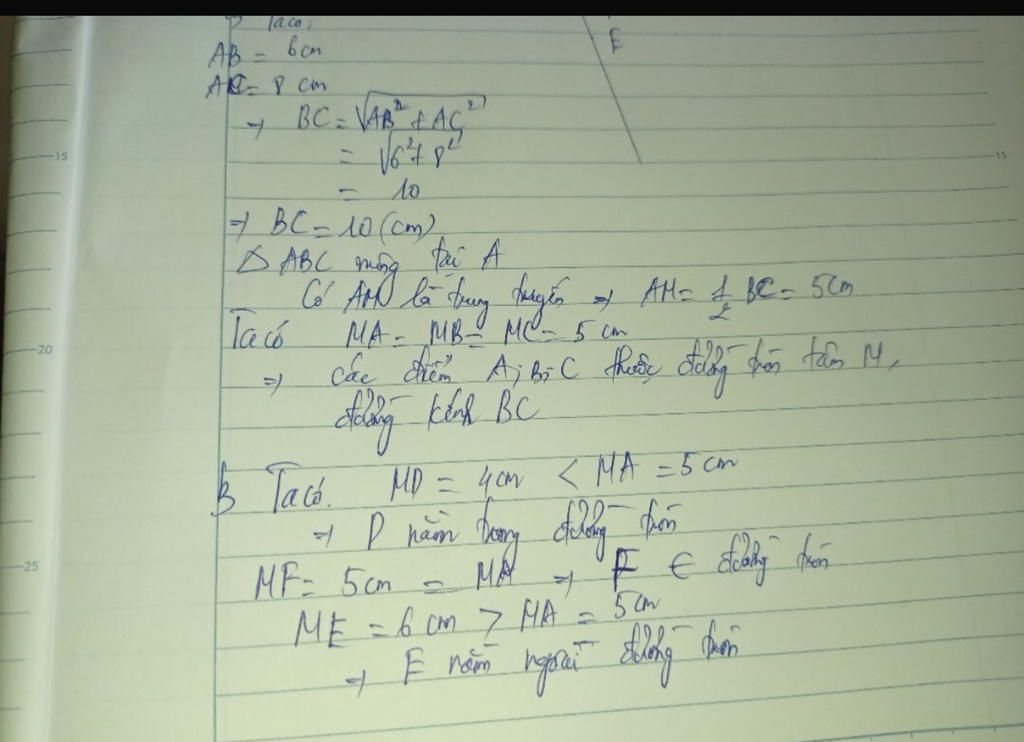 Ta có:
E
AB = 6cm
AC = 8 cm
⇒ BC = √AB² + AC²
= √6² + 8²
= 10
15
15
⇒ BC = 10 (cm)
Δ ABC vuông tại A
Có AM là trung tuyến ⇒ AM = 1/2 BC = 5cm
Ta có MA = MB = MC = 5 cm
20
⇒ các điểm A; B; C thuộc đường tròn tâm M,
đường kính BC
B Ta có. MD = 4cm < MA = 5cm
⇒ D nằm trong đường tròn
25
MF = 5cm = MA ⇒ F ∈ đường tròn
ME = 6 cm > MA = 5cm
⇒ E nằm ngoài đường tròn